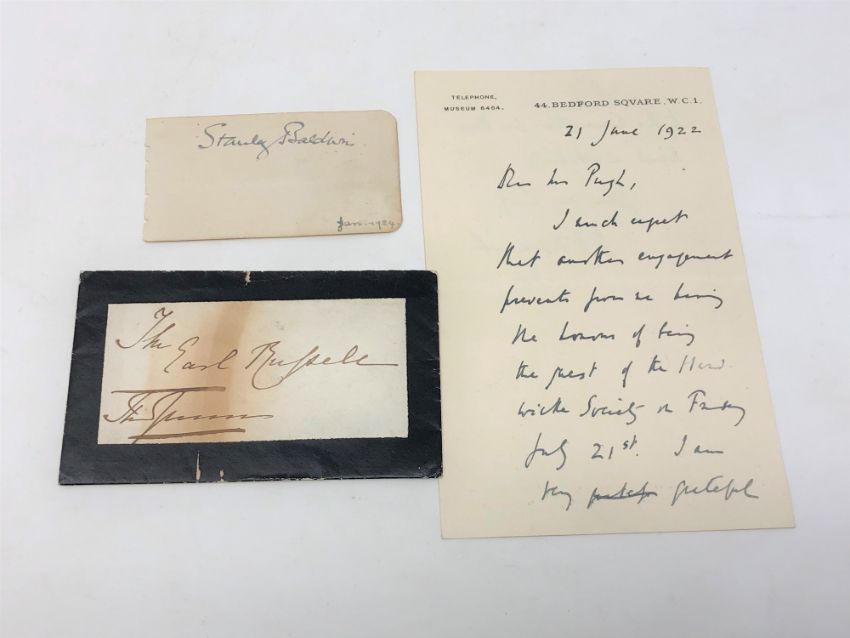 Stanley Baldwin
Jan. 1924.
The
Earl Russell
The Queen
TELEPHONE,
MUSEUM 6464.
44. BEDFORD SQVARE. W.C.1.
21 June 1922
Dear Mr Pugh,
I much regret
that another engagement
prevents from me having
the honour of being
the guest of the Hard
wicke Society on Friday
July 21st. I am
very grateful